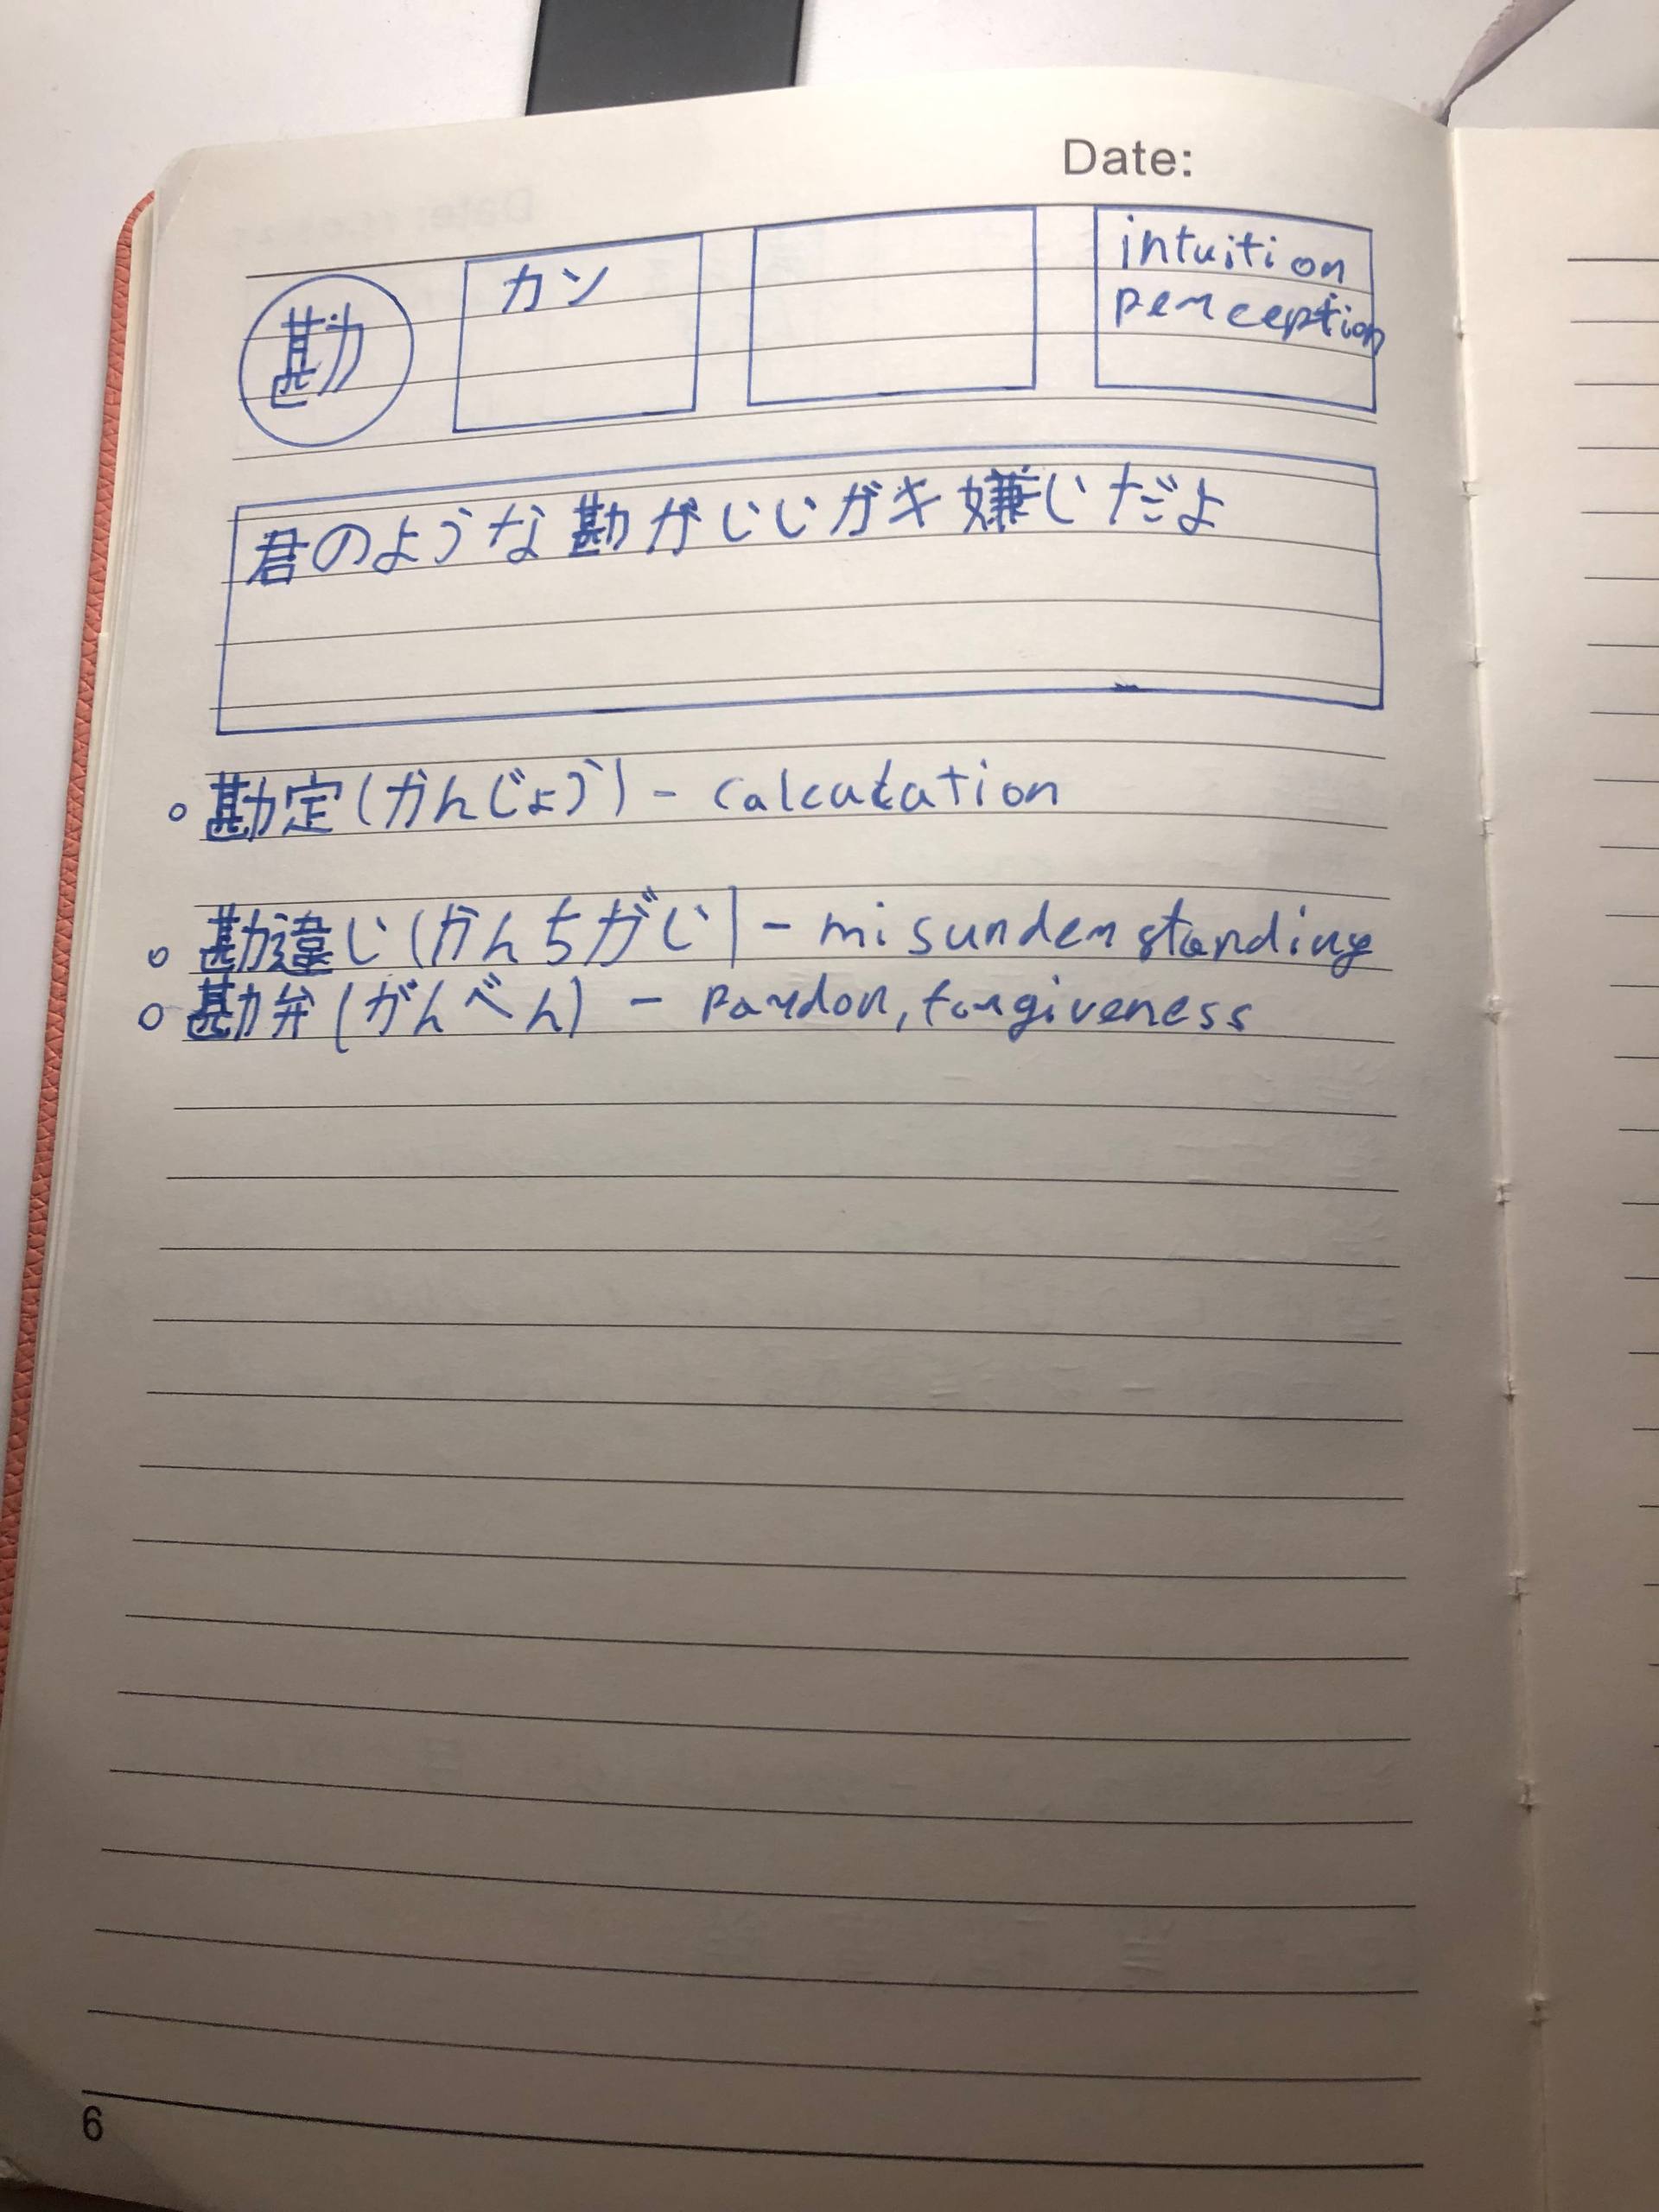 Date:
勘 カン intuition
perception
君のような勘がいいガキ嫌いだよ
勘定(かんじょう) - calculation
勘違い(かんちがい) - misunderstanding
勘弁(がんべん) - pardon, forgiveness
6